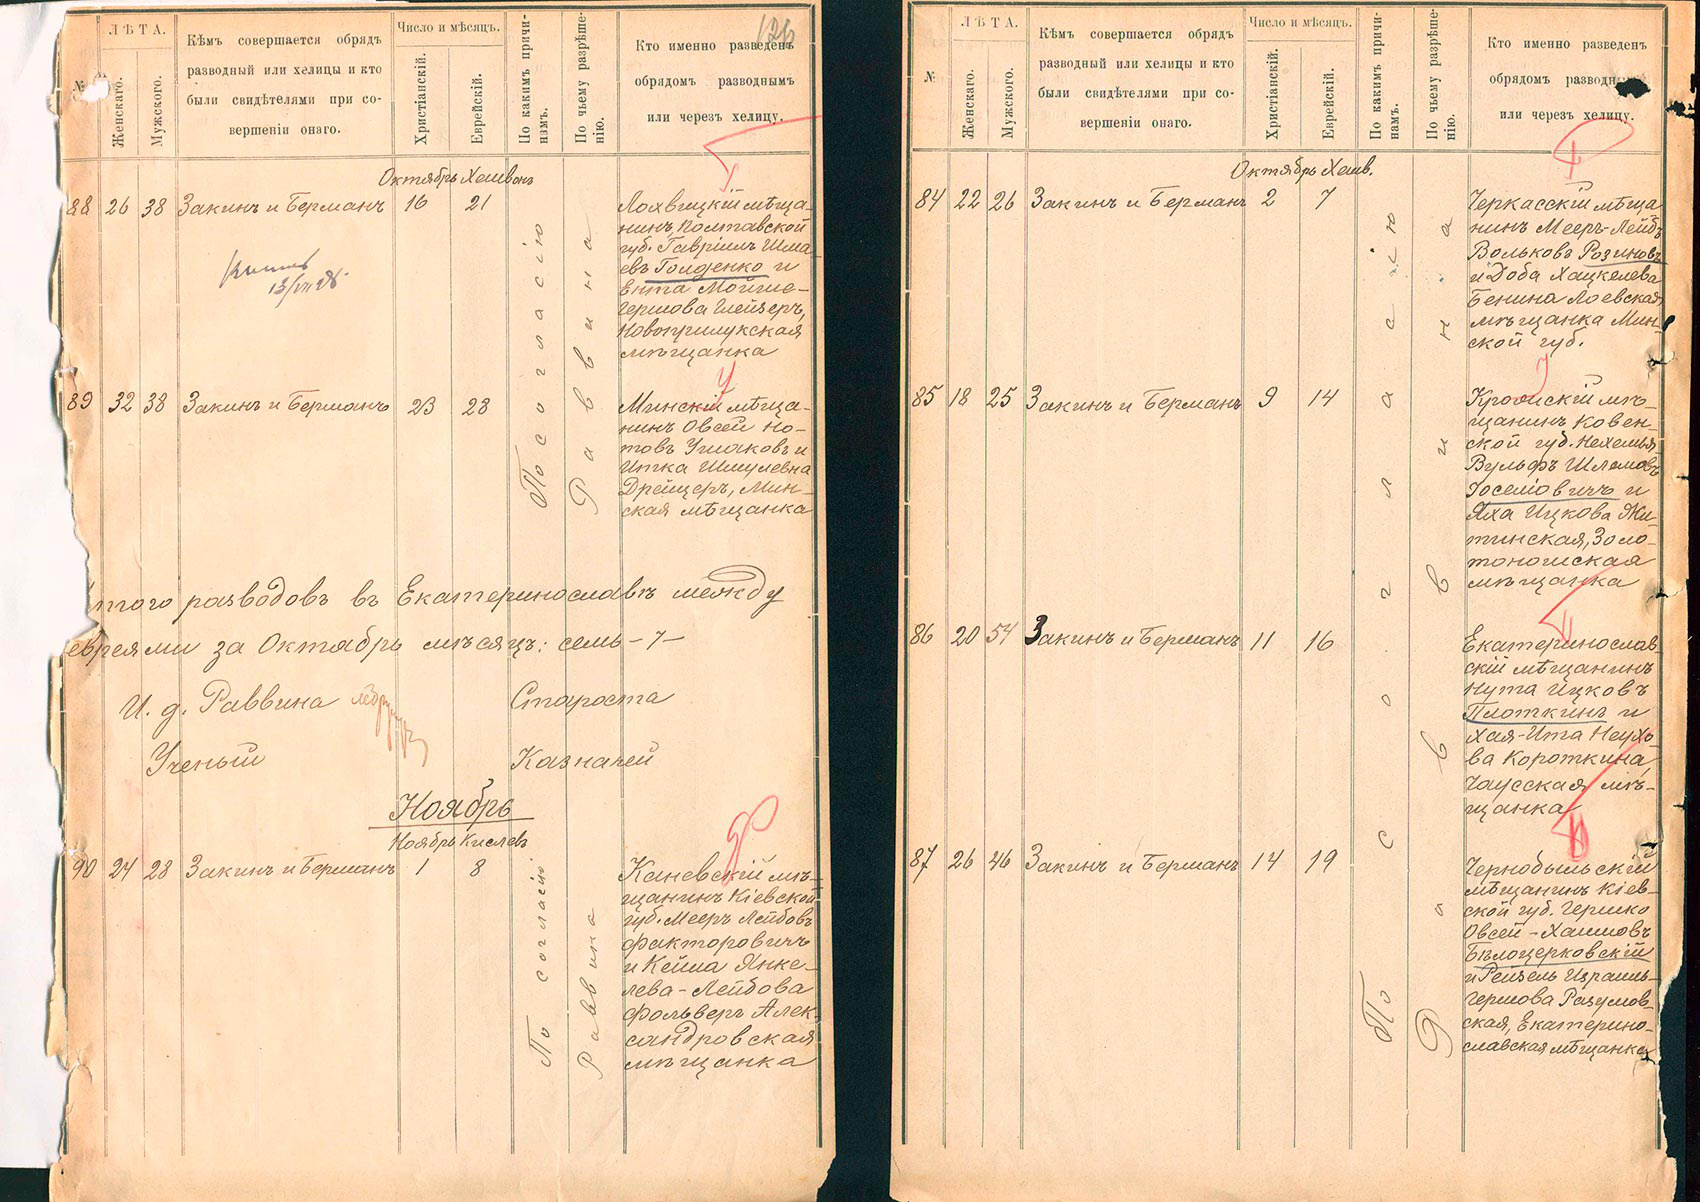 126
№
ЛѢТА.
Женскаго.
Мужского.
Кѣмъ совершается обрядъ
разводный или хелицы и кто
были свидѣтелями при со-
вершеніи онаго.
Число и мѣсяцъ.
Христіанскій.
Еврейскій.
По какимъ причи-
намъ.
По чьему разрѣше-
нію.
Кто именно разведенъ
обрядомъ разводнымъ
или черезъ хелицу.
Октябрь Хешвонъ
88 26 38 Закинъ и Берманъ 16 21
По согласію
Раввина
Лохвицкій мѣща-
нинъ, Полтавской
губ. Гавріилъ Шма-
евъ Голденко и
Ента Мойше-
Гершова Глейзеръ,
Новоприлукская
мѣщанка
89 32 38 Закинъ и Берманъ 23 28
Минскій мѣща-
нинъ Овсей Но-
товъ Ушаковъ и
Итка Шмулевна
Дрейцеръ, Мин-
ская мѣщанка
того разводовъ въ Екатеринославѣ между
евреями за Октябрь мѣсяцъ: семь -7-
И. д. Раввина
Староста
Ученый
Казначей
Ноябрь
Ноябрь Кислевъ
90 24 28 Закинъ и Берманъ 1 8
По согласію
Раввина
Каневскій мѣ-
щанинъ Кіевской
губ. Мееръ Лейбовъ
Факторовичъ
и Кейла Янке-
лева-Лейбова
Фольверъ Алек-
сандровская
мѣщанка
№
ЛѢТА.
Женскаго.
Мужского.
Кѣмъ совершается обрядъ
разводный или хелицы и кто
были свидѣтелями при со-
вершеніи онаго.
Число и мѣсяцъ.
Христіанскій.
Еврейскій.
По какимъ причи-
намъ.
По чьему разрѣше-
нію.
Кто именно разведенъ
обрядомъ разводнымъ
или черезъ хелицу.
Октябрь Хешв.
84 22 26 Закинъ и Берманъ 2 7
По согласію
Раввина
Черкасскій мѣща
нинъ Мееръ-Лейбъ
Вольковъ Розиновъ
и Доба Хацкелева
Бенина Лоевская
мѣщанка Мин-
ской губ.
85 18 25 Закинъ и Берманъ 9 14
мѣ-
щанинъ Ковен-
ской губ. Нехемья
Вульфъ Шлемовъ
Іоселіовичъ и
Яха Ицкова Жи-
тинская, Золо-
тоношская
мѣщанка
86 20 54 Закинъ и Берманъ 11 16
Екатеринослав-
скій мѣщанинъ
Нута Ицковъ
Плоткинъ и
Хая-Ита Неухо-
ва Короткина,
Чаусская мѣ-
щанка
87 26 46 Закинъ и Берманъ 14 19
Чернобыльскій
мѣщанинъ Кіев-
ской губ. Гершко
Овсей-Хаимовъ
Бѣлоцерковскій
и Рейзель Израиль-
Гершова Разумов-
ская, Екатерино-
славская мѣщанка